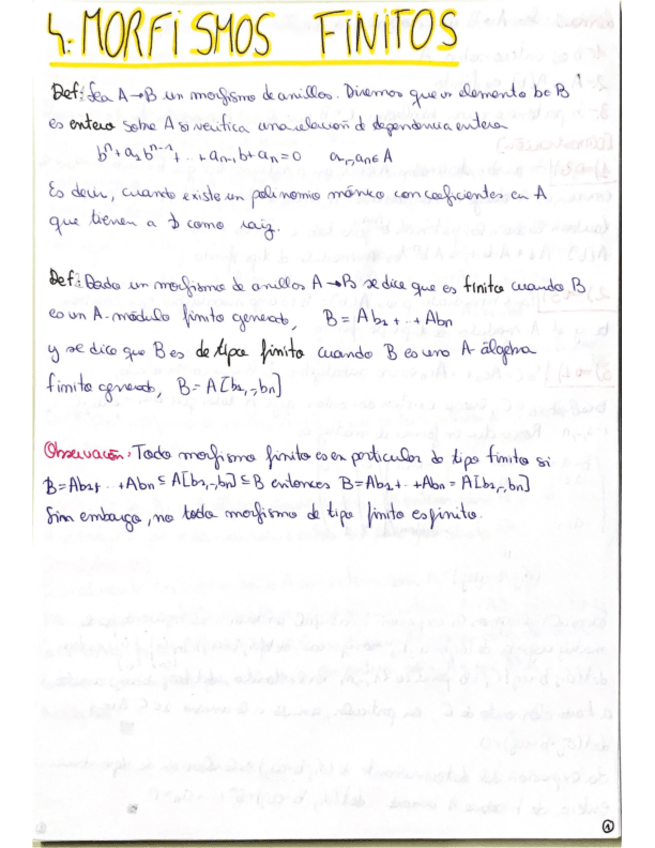 4. MORFISMOS FINITOS
Def: Sea A→B un morfismo de anillos. Diremos que un elemento b∈B
es entero sobre A si verifica una relación de dependencia entera
bⁿ+a₁bⁿ⁻¹+...+aₙ₋₁b+aₙ=0 a₁,aₙ∈A
Es decir, cuando existe un polinomio mónico con coeficientes en A
que tienen a b como raíz.
Def: Dado un morfismo de anillos A→B se dice que es finito cuando B
es un A-módulo finito generado, B=Ab₁+...+Abₙ
y se dice que B es de tipo finito cuando B es una A-álgebra
finito generado, B=A[b₁,..,bₙ]
Observación: Todo morfismo finito es en particular de tipo finito si
B=Ab₁+...+Abₙ⊆A[b₁,..,bₙ]⊆B entonces B=Ab₁+..+Abₙ=A[b₁,..,bₙ]
Sin embargo, no todo morfismo de tipo finito es finito.
1